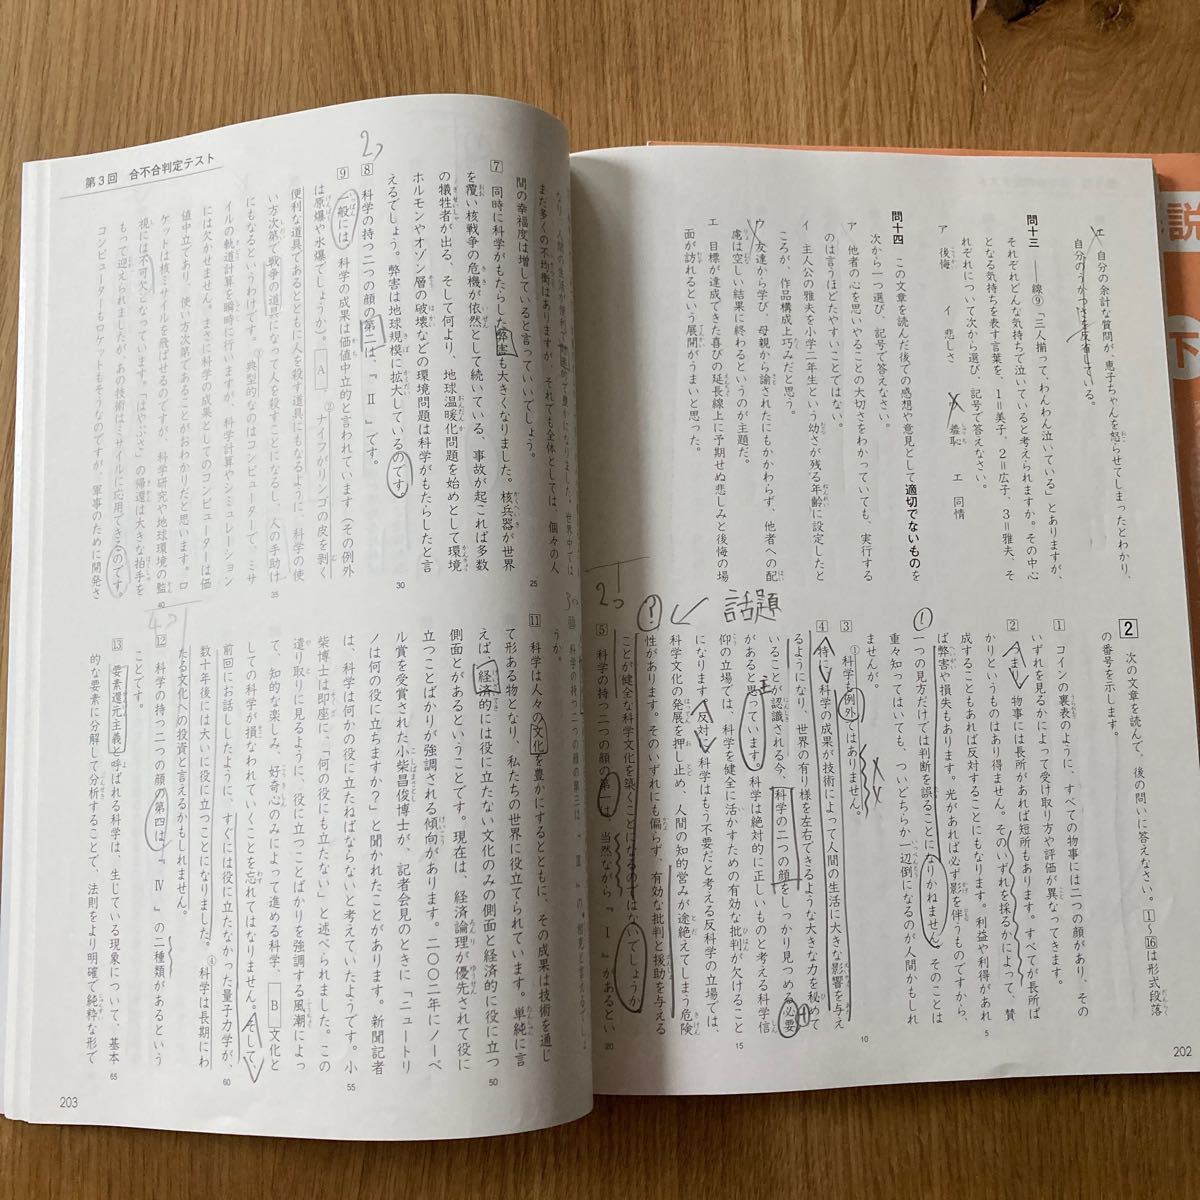 エ 自分の余計な質問が、恵子ちゃんを怒らせてしまったとわかり、
自分のうかつさを反省している。
問十三 ――線⑨「三人揃って、わんわん泣いている」とありますが、
それぞれどんな気持ちで泣いていると考えられますか。その中心
となる気持ちを表す言葉を、1＝美子、2＝広子、3＝雅夫、そ
れぞれについて次から選び、記号で答えなさい。
ア 後悔 イ 悲しさ ウ 羞恥 エ 同情
問十四 この文章を読んだ後での感想や意見として適切でないものを
次から一つ選び、記号で答えなさい。
ア 他者の心を思いやることの大切さをわかっていても、実行する
のは言うほどたやすいことではない。
イ 主人公の雅夫を小学二年生という幼さが残る年齢に設定したと
ころが、作品構成上巧みだと思う。
ウ 友達から学び、母親から諭されたにもかかわらず、他者への配
慮は空しい結果に終わるというのが主題だ。
エ 目標が達成できた喜びの延長線上に予期せぬ悲しみと後悔の場
面が訪れるという展開がうまいと思った。
2 次の文章を読んで、後の問いに答えなさい。1～16は形式段落
の番号を示します。
1 コインの裏表のように、すべての物事には二つの顔があり、その
いずれを見るかによって受け取り方や評価が異なってきます。
2 つまり、物事には長所があれば短所もあります。すべてが長所ば
かりというものはあり得ません。そのいずれを採るかによって、賛
成することもあれば反対することにもなります。利益や利得があれ
ば弊害や損失もあります。光があれば必ず影を伴うものですから、
一つの見方だけでは判断を誤ることになりかねません。そのことは
重々知ってはいても、ついどちらか一辺倒になるのが人間かもしれ
ませんが。
3 ①科学も例外ではありません。
4 特に、科学の成果が技術によって人間の生活に大きな影響を与え
るようになり、世界の有り様を左右できるような大きな力を秘めて
いることが認識される今、科学の二つの顔をしっかり見つめる必要
があると思っています。科学は絶対的に正しいものと考える科学信
仰の立場では、科学を健全に活かすための有効な批判が欠けること
になります。反対に、科学はもう不要だと考える反科学の立場では、
科学文化の発展を押し止め、人間の知的営みが途絶えてしまう危険
性があります。そのいずれにも偏らず、有効な批判と援助を与える
ことが健全な科学文化を築くことになるのではないでしょうか。
5 科学の持つ二つの顔の第一は、当然ながら「Ⅰ」があるとい
話題
主
202
第3回 合不合判定テスト
まだ多くの不均衡はありますが、それでも全体としては、個々の人
間の幸福度は増していると言っていいでしょう。
7 同時に科学がもたらした弊害も大きくなりました。核兵器が世界
を覆い核戦争の危機が依然として続いている、事故が起これば多数
の犠牲者が出る、そして何より、地球温暖化問題を始めとして環境
ホルモンやオゾン層の破壊などの環境問題は科学がもたらしたと言
えるでしょう。弊害は地球規模に拡大しているのです。
8 科学の持つ二つの顔の第二は、「Ⅱ」です。
9 一般には、科学の成果は価値中立的と言われています（その例外
は原爆や水爆でしょうか）。A ②ナイフがリンゴの皮を剥く
便利な道具であるとともに人を殺す道具にもなるように、科学の使
い方次第で戦争の道具になって人を殺すことになるし、人の手助け
にもなるというわけです。③典型的なのはコンピューターで、ミサ
イルの軌道計算を瞬時に行いますが、科学計算やシミュレーション
には欠かせません。まさに科学の成果としてのコンピューターは価
値中立であり、使い方次第であることがおわかりだと思います。ロ
ケットは核ミサイルを飛ばせるのですが、科学研究や地球環境の監
視には不可欠となっています。「はやぶさ」の帰還は大きな拍手を
もって迎えられましたが、あの技術はミサイルに応用できるのです。
コンピューターもロケットもそうなのですが、軍事のために開発さ
11 科学は人々の文化を豊かにするとともに、その成果は技術を通じ
て形ある物となり、私たちの世界に役立てられています。単純に言
えば、経済的には役に立たない文化のみの側面と経済的に役に立つ
側面とがあるということです。現在は、経済論理が優先されて役に
立つことばかりが強調される傾向があります。二〇〇二年にノーベ
ル賞を受賞された小柴昌俊博士が、記者会見のときに「ニュートリ
ノは何の役に立ちますか？」と聞かれたことがあります。新聞記者
は、科学は何かの役に立たねばならないと考えていたようです。小
柴博士は即座に、「何の役にも立たない」と述べられました。この
遣り取りに見るように、役に立つことばかりを強調する風潮によっ
て、知的な楽しみ、好奇心のみによって進める科学、B 文化と
しての科学が損なわれていくことを忘れてはなりません。そして、
前回にお話ししたように、すぐには役に立たなかった量子力学が、
数十年後には大いに役に立つことになりました。④科学は長期にわ
たる文化への投資と言えるかもしれません。
12 科学の持つ二つの顔の第四は「Ⅳ」の二種類があるという
ことです。
13 要素還元主義と呼ばれる科学は、生じている現象について、基本
的な要素に分解して分析することで、法則をより明確で純粋な形で
203
説
下